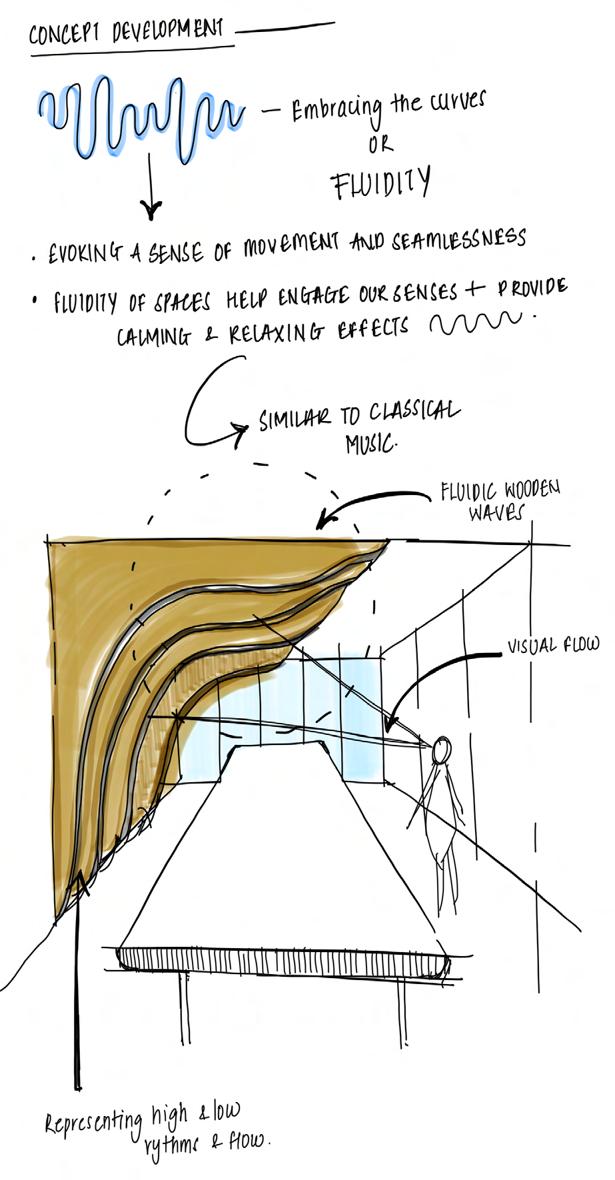 CONCEPT DEVELOPMENT
— Embracing the curves
OR
FLUIDITY
• EVOKING A SENSE OF MOVEMENT AND SEAMLESSNESS
• FLUIDITY OF SPACES HELP ENGAGE OUR SENSES + PROVIDE
CALMING & RELAXING EFFECTS
SIMILAR TO CLASSICAL
MUSIC.
FLUIDIC WOODEN
WAVES
VISUAL FLOW
Representing high & low
rythms & flow.